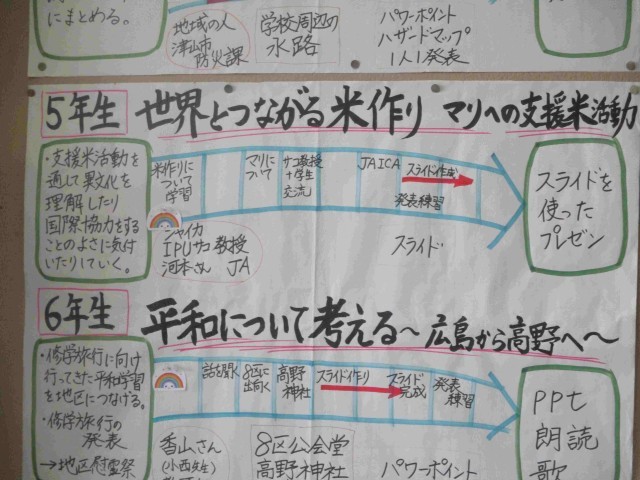 にまとめる。
地域の人
津山市
防災課
学校周辺の
水路
パワーポイント
ハザードマップ
1人1発表
5年生 世界とつながる米作り マリへの支援米活動
・支援米活動を
通して異文化を
理解したり
国際協力をする
ことのよさに気付
いたりしていく。
米作りに
ついて
学習
マリに
ついて
サコ教授
+学生
交流
JAICA
スライド作成
発表練習
ジャイカ
IPUサコ教授
河本さん JA
スライド
スライドを
使った
プレゼン
6年生 平和について考える~広島から高野へ~
・修学旅行に向け
行ってきた平和学習
を地区につなげる。
・修学旅行の
発表
→地区慰霊祭
話を聞く
8区に
出向く
高野
神社
スライド作り
スライド
完成
発表
練習
香山さん
(小西先生)
8区公会堂
高野神社
パワーポイント
PPt
朗読
歌